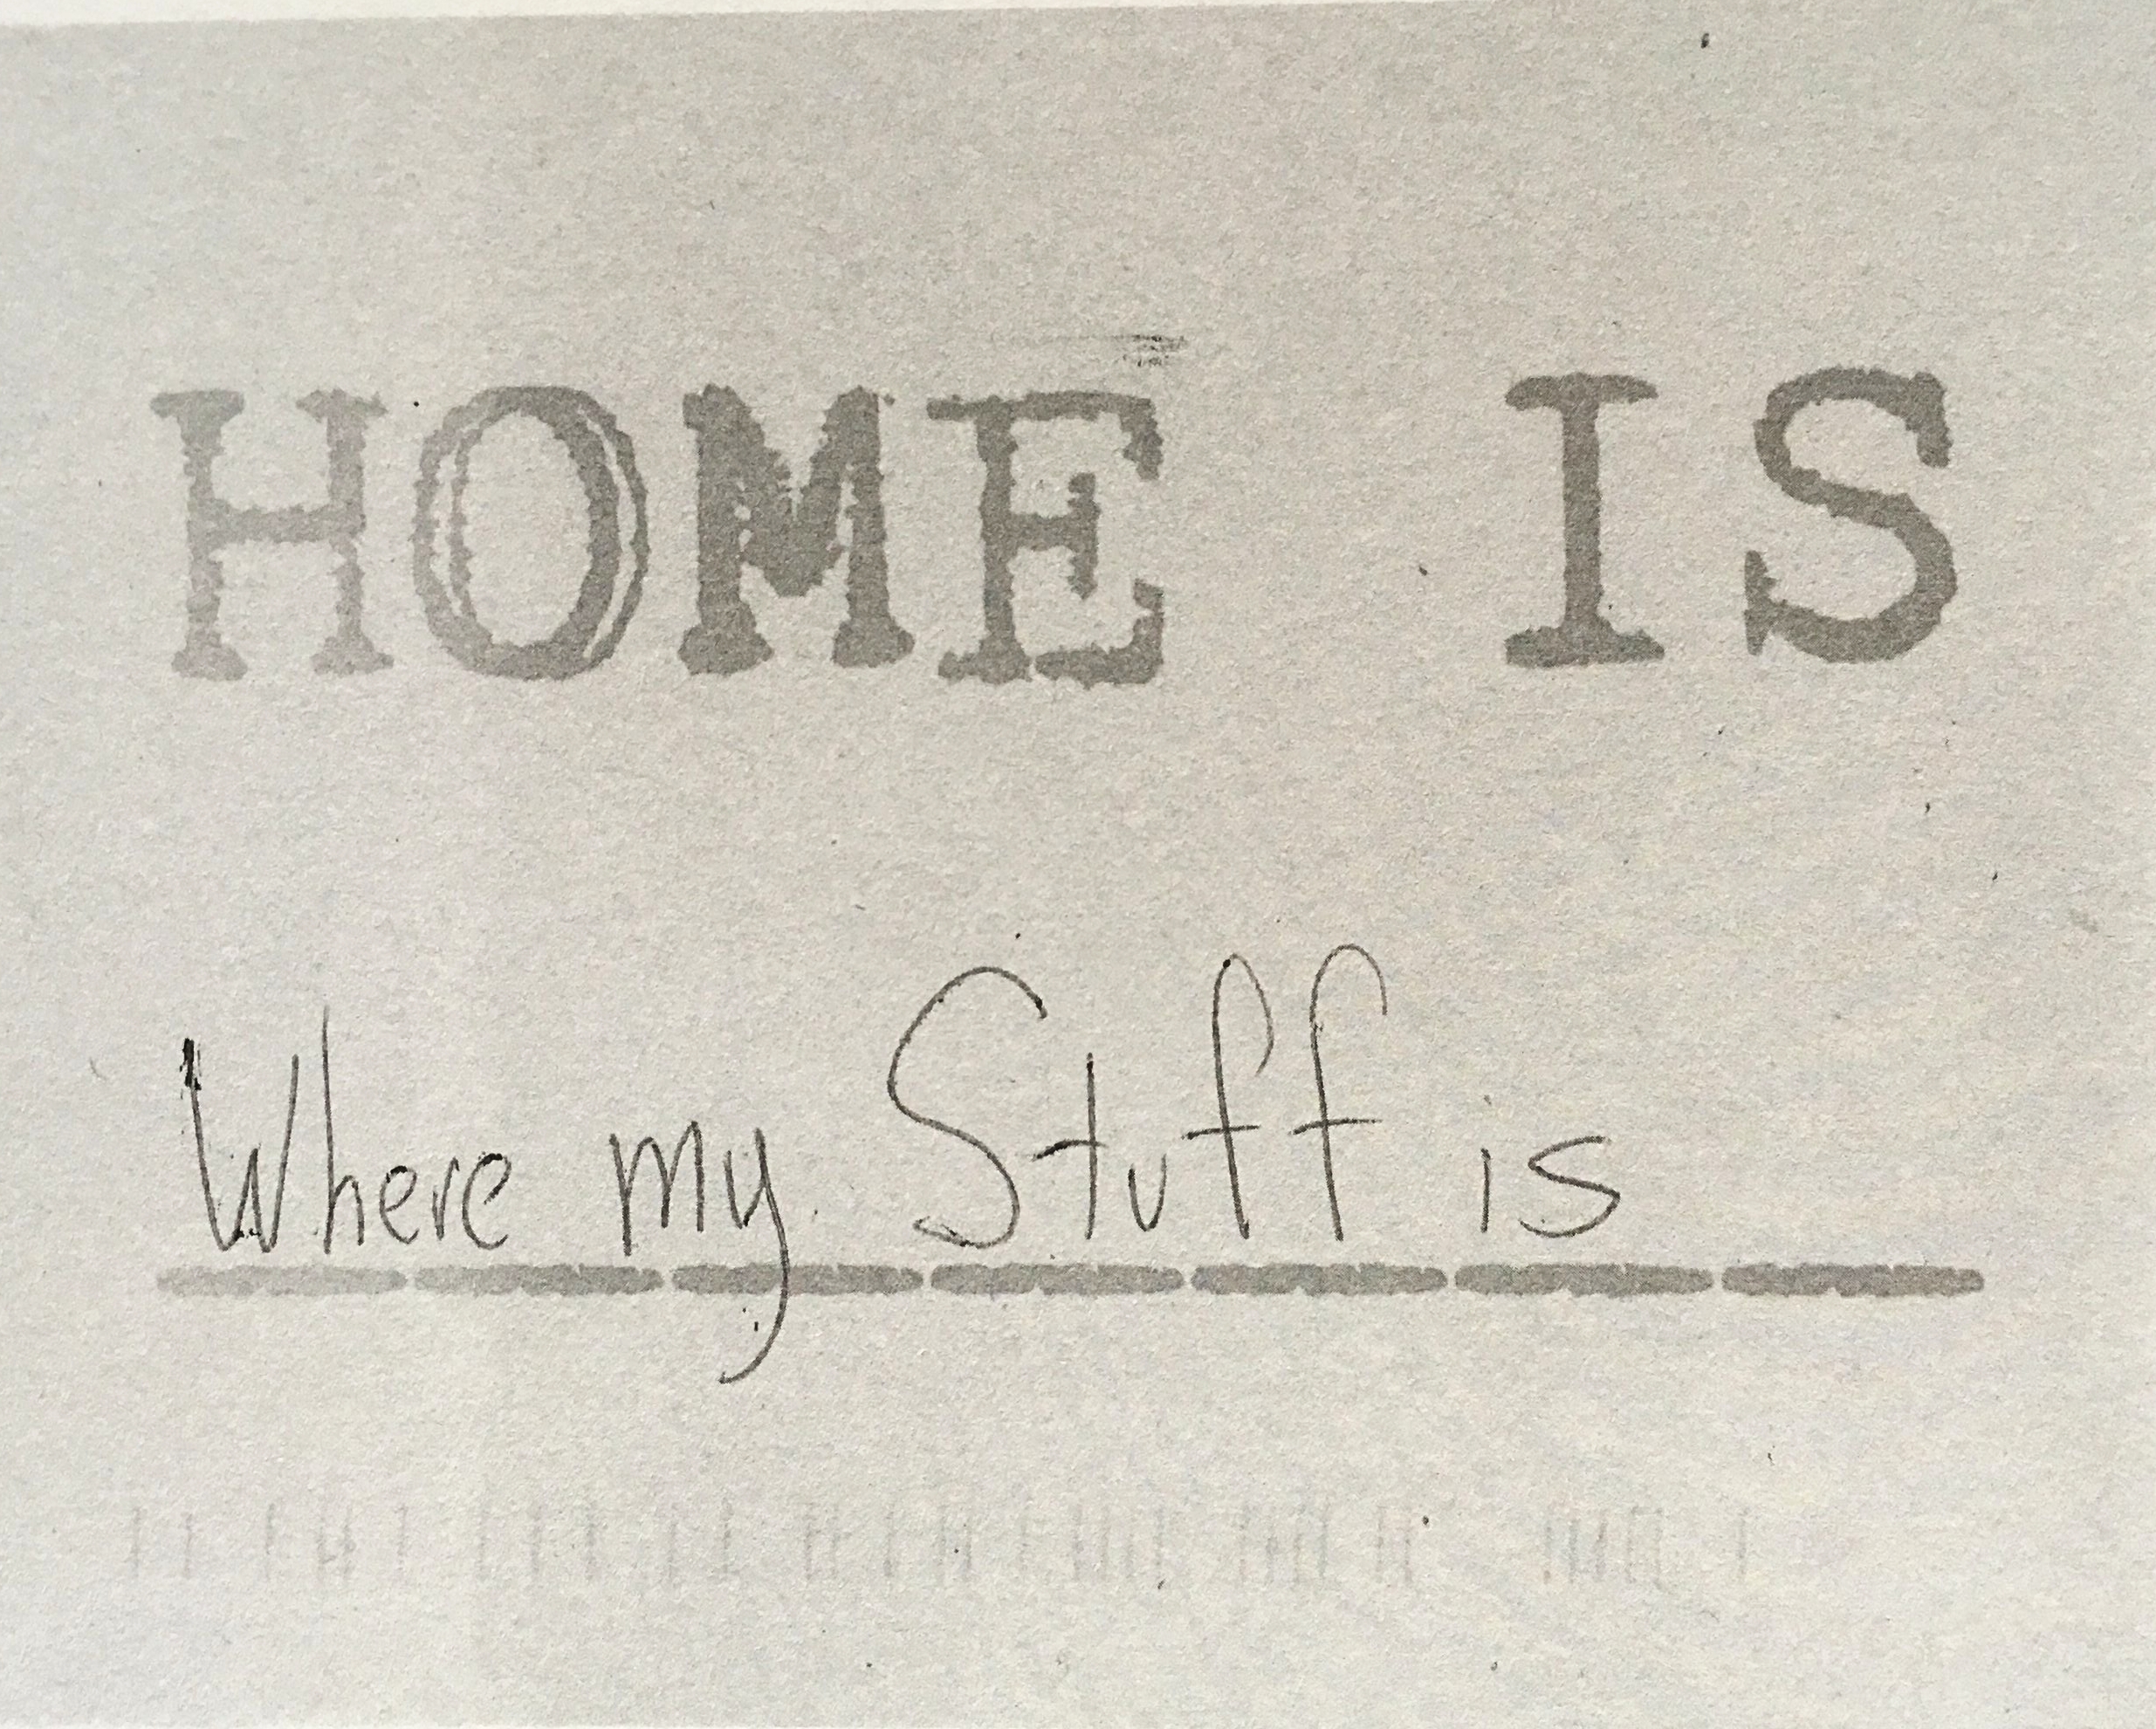 HOME IS
Where my Stuff is